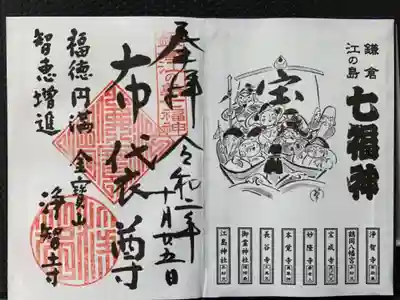 鎌倉
江の島
七福神
宝
浄智寺
鶴岡八幡宮
宝戒寺
妙隆寺
本覚寺
長谷寺
御霊神社
江島神社
奉拝 令和二年
十月廿五日
布袋尊
福徳円満 金寶山
智恵増進 浄智寺